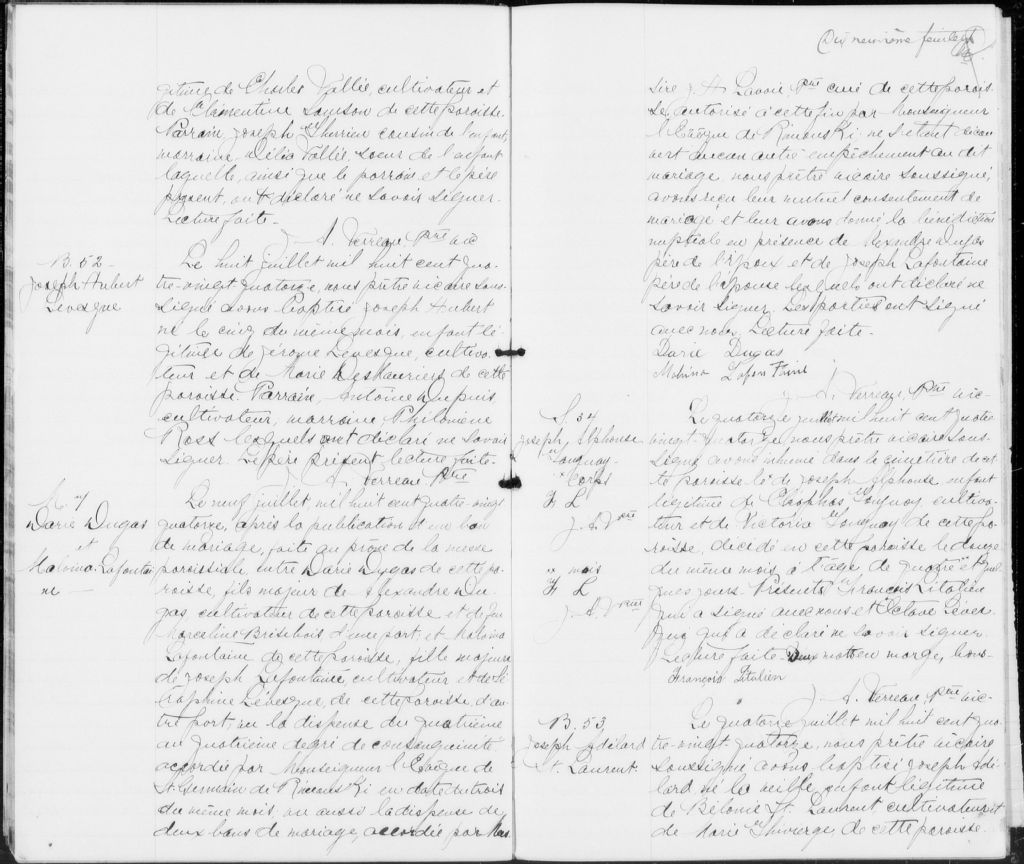 gitime de Charles Vallée, cultivateur et
de Clementine Samson de cette paroisse.
Parrain Joseph Therrien cousin de l'enfant,
marraine Délia Vallée, soeur de l'enfant
laquelle, ainsi que le parrain et le père
présent, ont déclaré ne savoir signer.
Lecture faite-
J. A. Verreau Ptre vic
B. 52-
Joseph Hubert
Levesque
Le huit juillet mil huit cent qua-
tre-vingt quatorze, nous prêtre vicaire sous-
signé avons baptisé Joseph Hubert
né le cinq du même mois, enfant lé-
gitime de Jérome Levesque, cultiva-
teur et de Marie Desheuriers de cette
paroisse Parrain, Antoine Dupuis
cultivateur, marraine Philomène
Ross lesquels ont déclaré ne savoir
signer. Le père présent, lecture faite-
J. A. Verreau Ptre
M. 7
Darie Dugas
et
Malvina Lafontai
ne —
Le neuf juillet, mil huit cent quatre-vingt
quatorze, après la publication d'un ban
de mariage, faite au prône de la messe
paroissiale, entre Darie Dugas de cette pa-
roisse, fils majeur de Alexandre Du-
gas, cultivateur de cette paroisse et de feu
Marceline Brisebois d'une part, et Malvina
Lafontaine de cette paroisse, fille majeure
de Joseph Lafontaine cultivateur et de Sé-
raphine Lévesque, de cette paroisse, d'au-
tre part, vu la dispense du quatrième
au quatrième degré de consanguinité
accordée par Monseigneur l'Evêque de
St Germain de Rimouski en date du trois
du même mois, vu aussi la dispense de
deux bans de mariage, accordée par Mes-
Dix neuvième feuillet
sire J. A Lavoie Ptre curé de cette parois-
se, autorisé à cette fin par Monseigneur
l'Evêque de Rimouski ne s'étant décou-
vert aucun autre empêchement au dit
mariage, nous prêtre vicaire soussigné,
avons reçu leur mutuel consentement de
mariage et leur avons donné la bénédiction
nuptiale en présence de Alexandre Dugas
père de l'époux et de Joseph Lafontaine
père de l'épouse lesquels ont déclaré ne
savoir signer. Les parties ont signé
avec nous. Lecture faite-
Darie Dugas
Malvina Lafontaine
J. A. Verreau, Ptre vic-
S. 34
Joseph Alphonse
Tanguay-
corps
F L
J. A. V Ptre
Le quatorze juillet mil huit cent quatre
vingt quatorze, nous prêtre vicaire sous-
signé avons inhumé dans le cimetière de cet-
te paroisse le de Joseph Alphonse, enfant
légitime de Cléophas Tanguay cultiva-
teur et de Victoria Tanguay de cette pa-
roisse, décédé en cette paroisse le douze
du même mois, à l'âge de quatre et quel-
ques jours. Présents François Litalien
qui a signé avec nous et Octave Léves-
que qui a déclaré ne savoir signer.
Lecture faite- Deux mots en marge, bons-
François Italien
mois
F L
J. A. V Ptre
J. A. Verreau Ptre vic-
B. 53
Joseph Adélard
St. Laurent.
Le quatorze juillet mil huit cent qua-
tre-vingt-quatorze, nous prêtre vicaire
soussigné avons baptisé Joseph Adé-
lard né la veille, enfant légitime
de Bélonie St. Laurent cultivateur et
de Marie Thivierge, de cette paroisse.